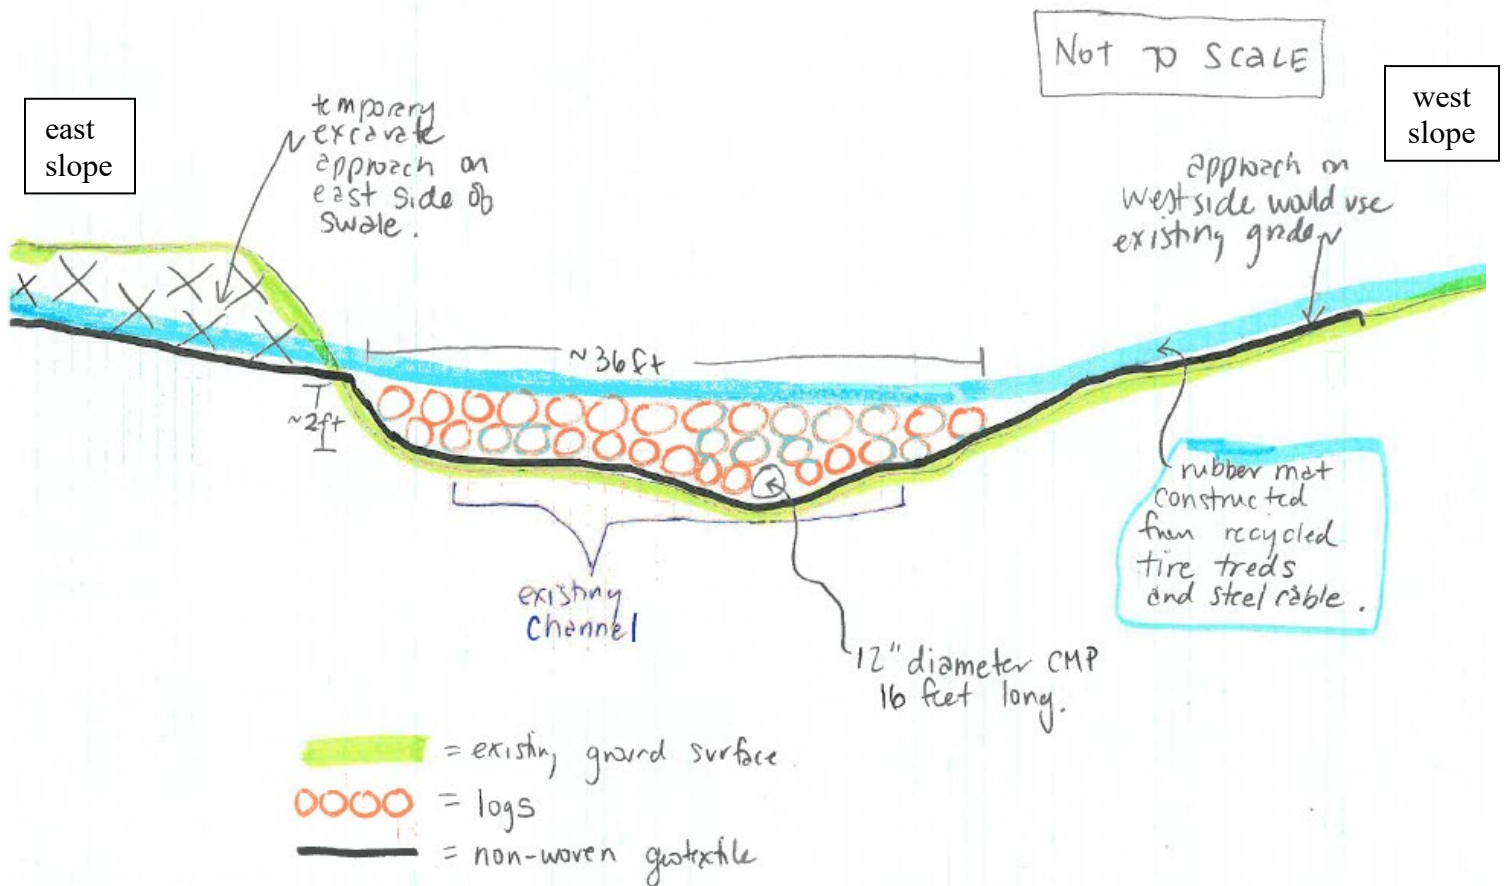 Not to SCALE
east
slope
west
slope
temporary
excavate
approach on
east side of
swale.
approach on
west side would use
existing grade
~36ft
~2ft
rubber mat
constructed
from recycled
tire treds
and steel cable.
existing
channel
12" diameter CMP
16 feet long.
= existing ground surface
= logs
= non-woven geotextile